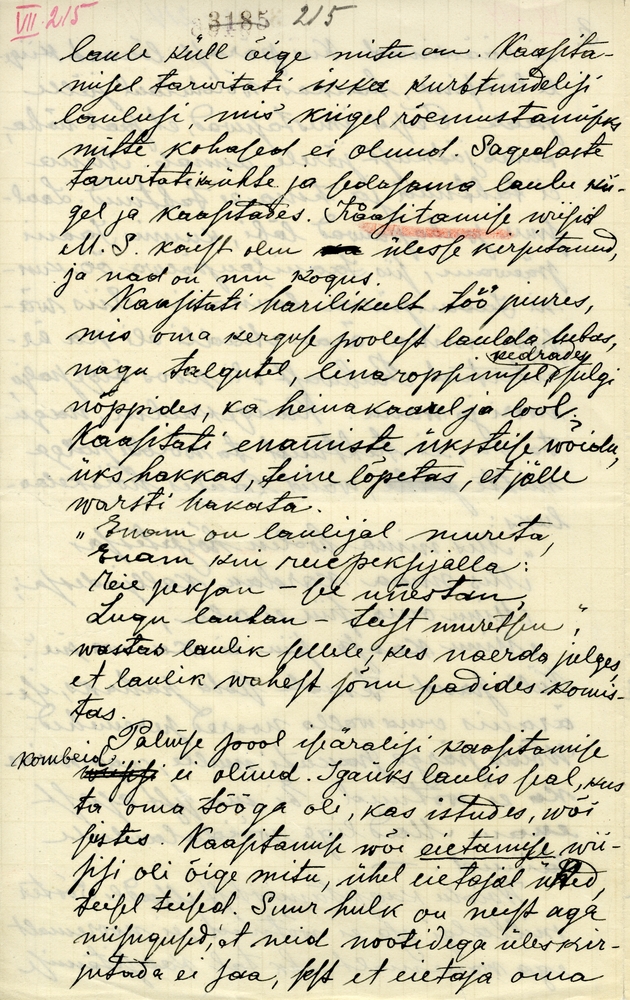 VII 215
3185 215
laule küll õige mitu on. Kaasita-
misel tarwitati ikka kurbtundelisi
laulusi, mis kiigel rõemustamiseks
mitte kohased ei olnud. Sagedaste
tarwitati ka ühte ja sedasama laulu kii-
gel ja kaasitades. Kaasitamise wiisid
M. S. käest olen ülesse kirjutanud,
ja nad on mu kogus.
Kaasitati harilikult töö juures,
mis oma kerguse poolest laulda lubas,
kedrades
nagu talgutel, linaroppimisel, sulgi
nöppides, ka heinakaarel ja lool.
Kaasitati enamiste üksteise wõidu,
üks hakkas, teine lõpetas, et jälle
warsti hakata.
„Enam on laulijal mureta,
Enam kui reiepeksijalla:
Reie peksan – se unestan,
Lugu laulan – teist muretsen",
wastas laulik sellele, kes naerda julges,
et laulik wahest sõnu seadides komis-
tas.
Palmse pool isäralisi kaasitamise
kombeid
ei olnud. Igaüks laulis seal, kus
ta oma tööga oli, kas istudes, wõi
seistes. Kaasitamise wõi eietamise wii-
sisi oli õige mitu, ühel eietajal ühed,
teisel teised. Suur hulk on neist aga
niisugused, et neid nootidega üleskir-
jutada ei saa, sest et eietaja oma